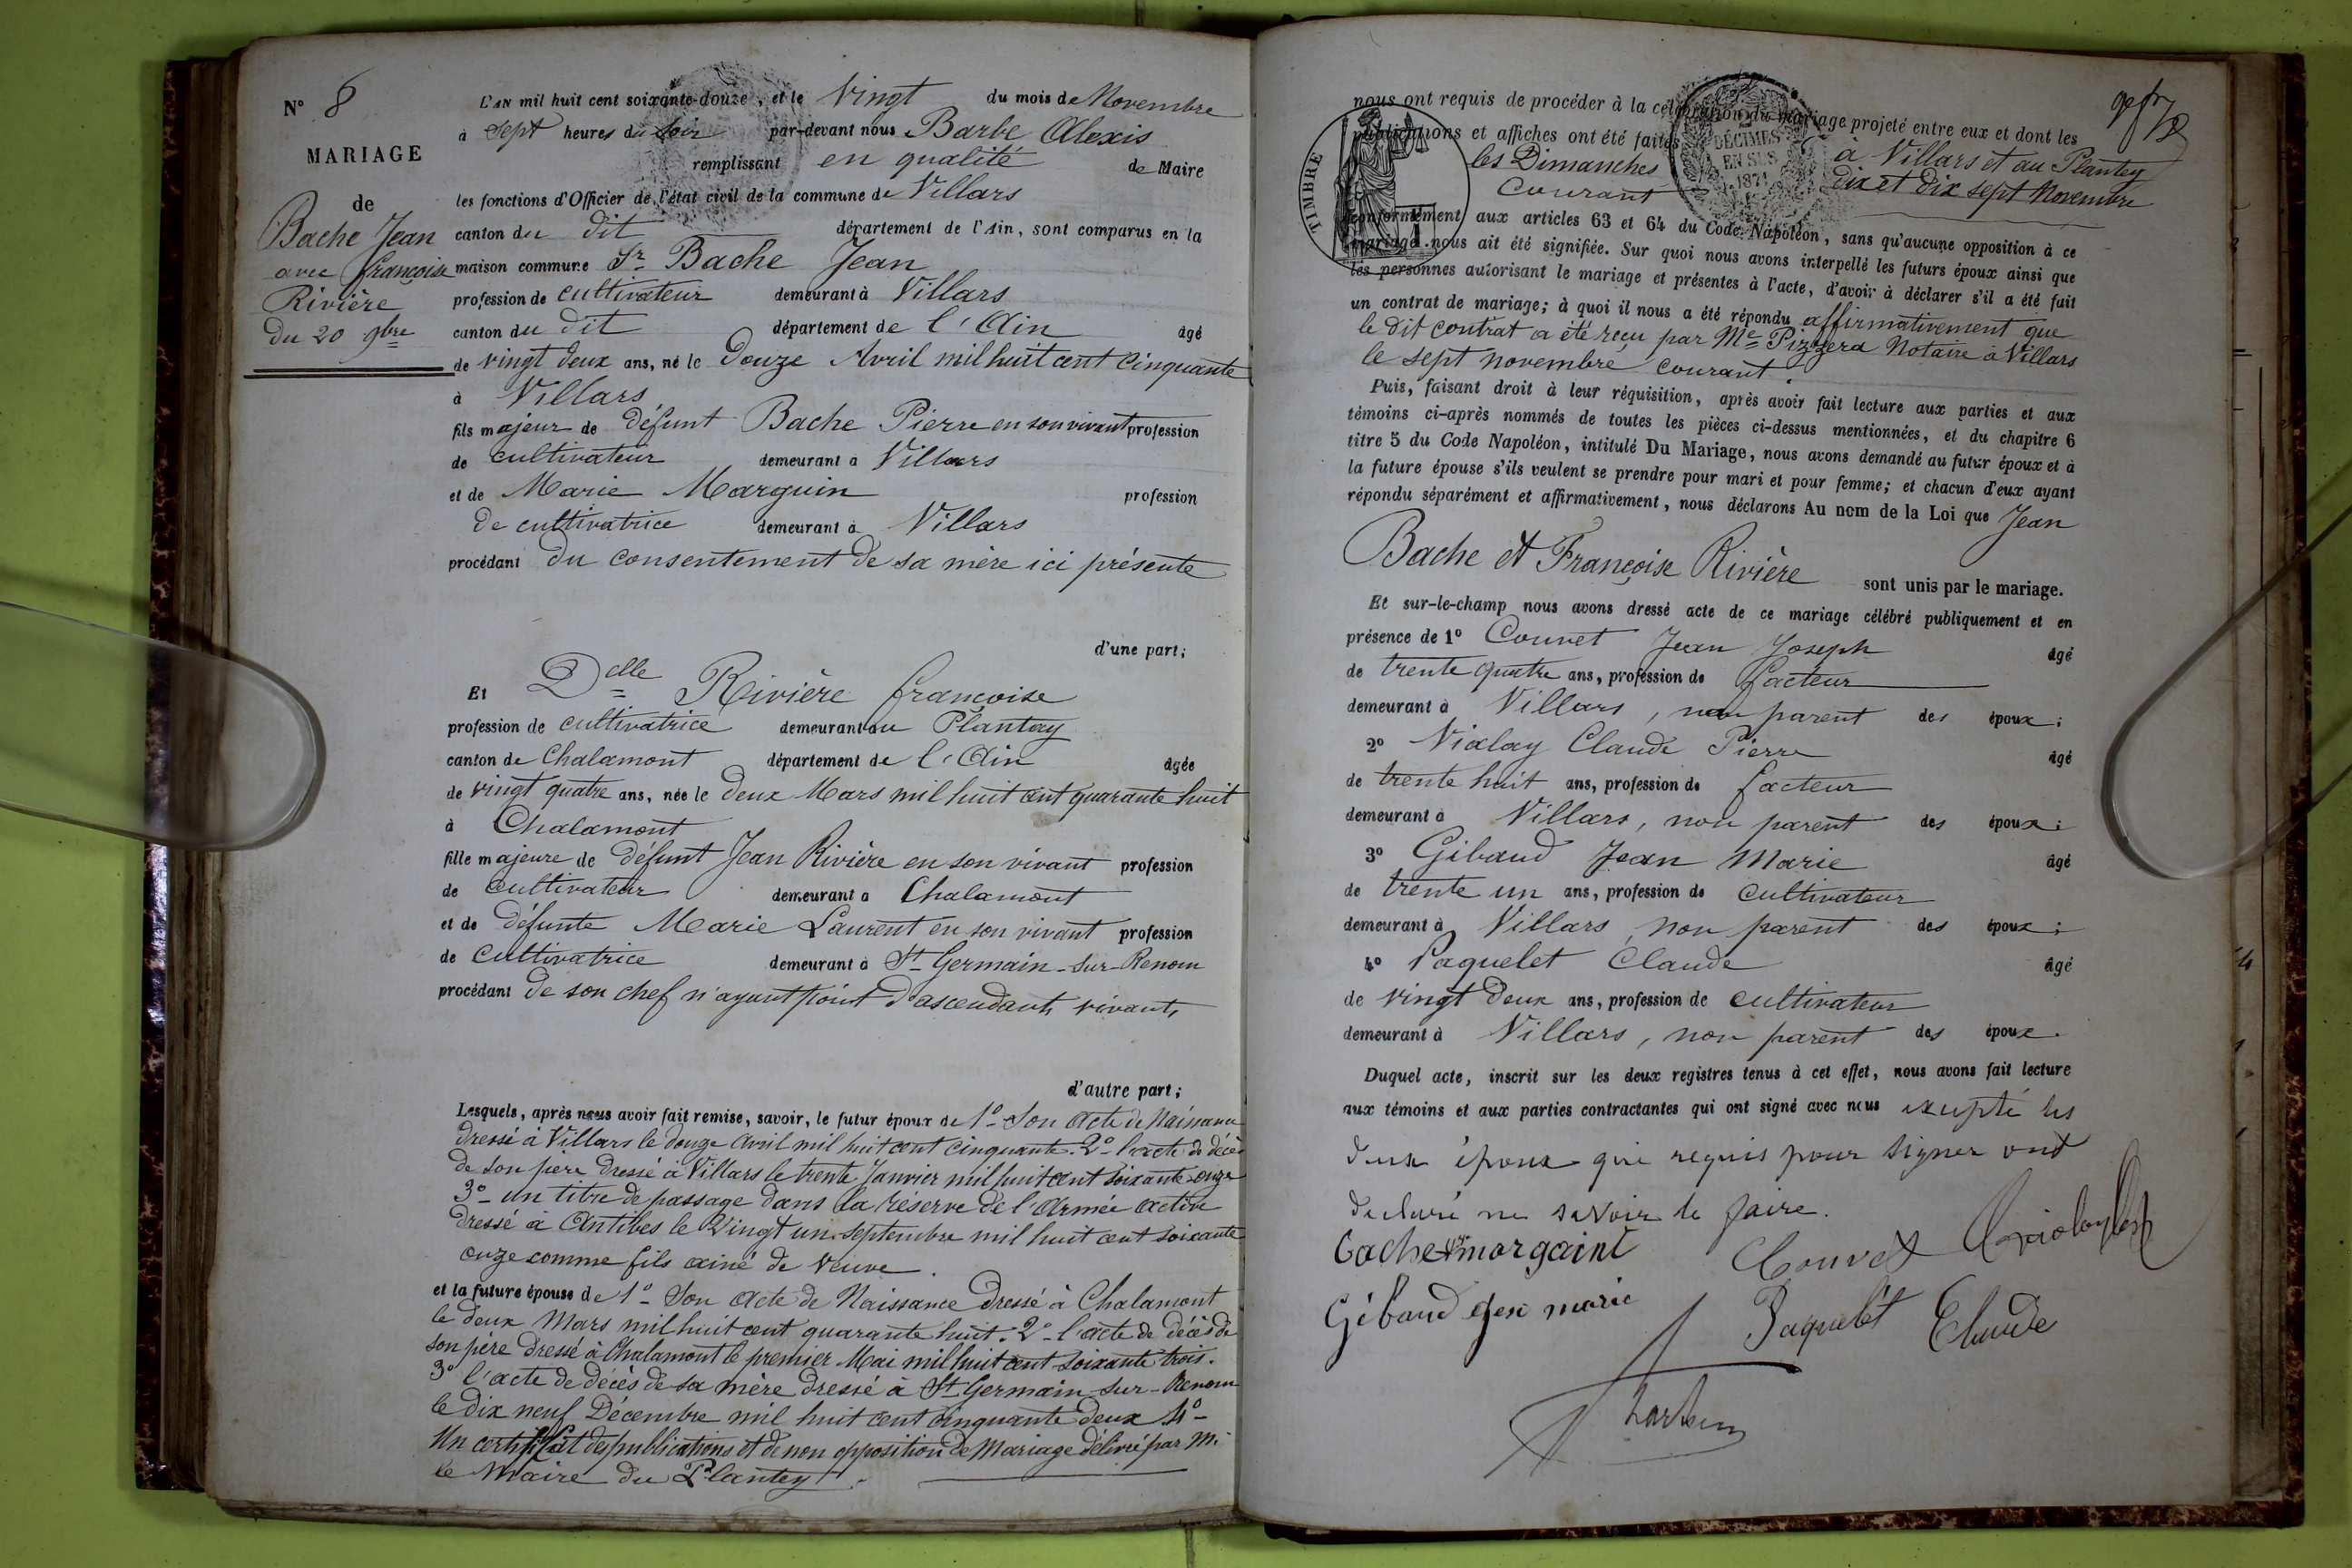 N° 8
MARIAGE
de
Bache Jean
avec françoise
Rivière
Du 20 9bre
L'AN mil huit cent soixante-douze, et le Vingt du mois de Novembre
à sept heures du soir par-devant nous Barbe Alexis
remplissant en qualité de Maire
les fonctions d'Officier de l'état civil de la commune de Villars
canton du dit département de l'Ain, sont comparus en la
maison commune Sr. Bache Jean
profession de cultivateur demeurant à Villars
canton du dit département de l'Ain âgé
de vingt deux ans, né le Douze Avril mil huit cent cinquante
à Villars
fils majeur de défunt Bache Pierre en son vivant profession
de cultivateur demeurant à Villars
et de Marie Marguin profession
de cultivatrice demeurant à Villars
procédant du consentement de sa mère ici présente
d'une part;
Et Delle Rivière françoise
profession de cultivatrice demeurant au Plantay
canton de Chalamont département de l'Ain âgée
de vingt quatre ans, née le deux Mars mil huit cent quarante huit
à Chalamont
fille majeure de défunt Jean Rivière en son vivant profession
de cultivateur demeurant à Chalamont
et de défunte Marie Laurent en son vivant profession
de cultivatrice demeurant à St Germain-sur-Renom
procédant de son chef n'ayant point d'ascendants vivants
d'autre part;
Lesquels, après nous avoir fait remise, savoir, le futur époux de 1°- Son Acte de Naissance
dressé à Villars le douze Avril mil huit cent cinquante. 2°- l'acte de décès
de son père dressé à Villars le trente Janvier mil huit cent soixante onze
3°- un titre de passage dans la réserve de l'Armée active
dressé à Antibes le Vingt un septembre mil huit cent soixante
onze comme fils ainé de veuve.
et la future épouse de 1°- Son Acte de Naissance dressé à Chalamont
le deux Mars mil huit cent quarante huit. 2°- l'acte de décès de
son père dressé à Chalamont le premier Mai mil huit cent soixante trois.
3° l'acte de décès de sa mère dressé à St Germain-sur-Renom
le dix neuf Décembre mil huit cent cinquante deux 4°-
Un certificat des publications et de non opposition de Mariage délivré par Mr
le Maire du Plantay.
nous ont requis de procéder à la célébration du mariage projeté entre eux et dont les
publications et affiches ont été faites à Villars et au Plantay
les Dimanches dix et dix sept Novembre
Courant
TIMBRE
DÉCIMES
EN SUS
1871
conformément aux articles 63 et 64 du Code Napoléon, sans qu'aucune opposition à ce
mariage nous ait été signifiée. Sur quoi nous avons interpellé les futurs époux ainsi que
les personnes autorisant le mariage et présentes à l'acte, d'avoir à déclarer s'il a été fait
un contrat de mariage; à quoi il nous a été répondu affirmativement que
le dit contrat a été reçu par Me Pizzera Notaire à Villars
le sept novembre courant.
Puis, faisant droit à leur réquisition, après avoir fait lecture aux parties et aux
témoins ci-après nommés de toutes les pièces ci-dessus mentionnées, et du chapitre 6
titre 5 du Code Napoléon, intitulé Du Mariage, nous avons demandé au futur époux et à
la future épouse s'ils veulent se prendre pour mari et pour femme; et chacun d'eux ayant
répondu séparément et affirmativement, nous déclarons Au nom de la Loi que Jean
Bache et Françoise Rivière sont unis par le mariage.
Et sur-le-champ nous avons dressé acte de ce mariage célébré publiquement et en
présence de 1° Couvet Jean Joseph âgé
de trente quatre ans, profession de facteur
demeurant à Villars, non parent des époux;
2° Violay Claude Pierre âgé
de trente huit ans, profession de facteur
demeurant à Villars, non parent des époux;
3° Gibaud Jean Marie âgé
de trente un ans, profession de cultivateur
demeurant à Villars, non parent des époux;
4° Paquelet Claude âgé
de vingt deux ans, profession de cultivateur
demeurant à Villars, non parent des époux.
Duquel acte, inscrit sur les deux registres tenus à cet effet, nous avons fait lecture
aux témoins et aux parties contractantes qui ont signé avec nous excepté les
deux époux qui requis pour signer ont
declaré ne savoir le faire.
morgaint
Couvet
Gibaud jean marie
Paquelet Claude